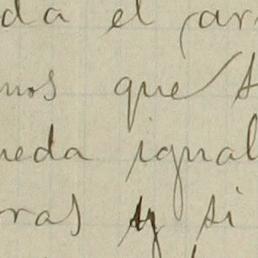 da el par
mos que s
ueda igual
ras y si